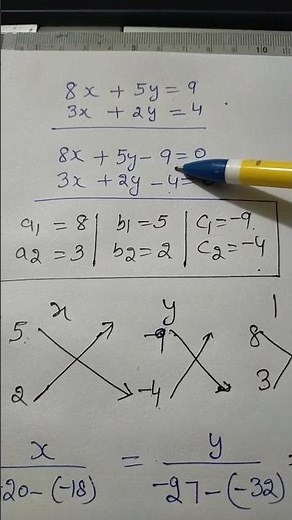 8x + 5y = 9
3x + 2y = 4
8x + 5y - 9 = 0
3x + 2y - 4 =
a1 = 8 | b1 = 5 | c1 = -9
a2 = 3 | b2 = 2 | c2 = -4
x y 1
5 -9 8
2 -4 3
x = y =
-20-(-18) -27-(-32)